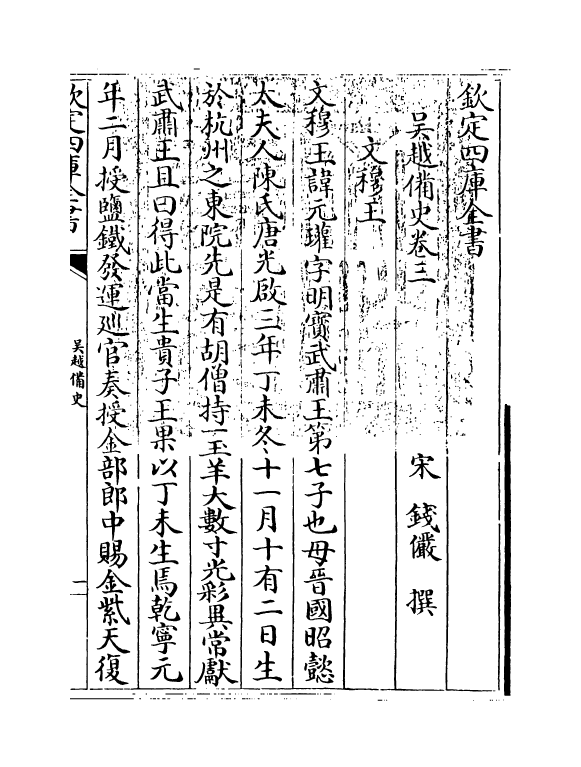 欽定四庫全書
吳越備史卷三
宋 錢儼 撰
文穆王
文穆王諱元瓘字明寳武肅王第七子也母晉國昭懿
太夫人陳氏唐光啟三年丁未冬十一月十有二日生
於杭州之東院先是有胡僧持一玉羊大數寸光彩異常獻
武肅王且曰得此當生貴子王果以丁未生焉乾寧元
年二月授鹽鐵發運廵官奏授金部郎中賜金紫天復
欽定四庫全書
吳越備史